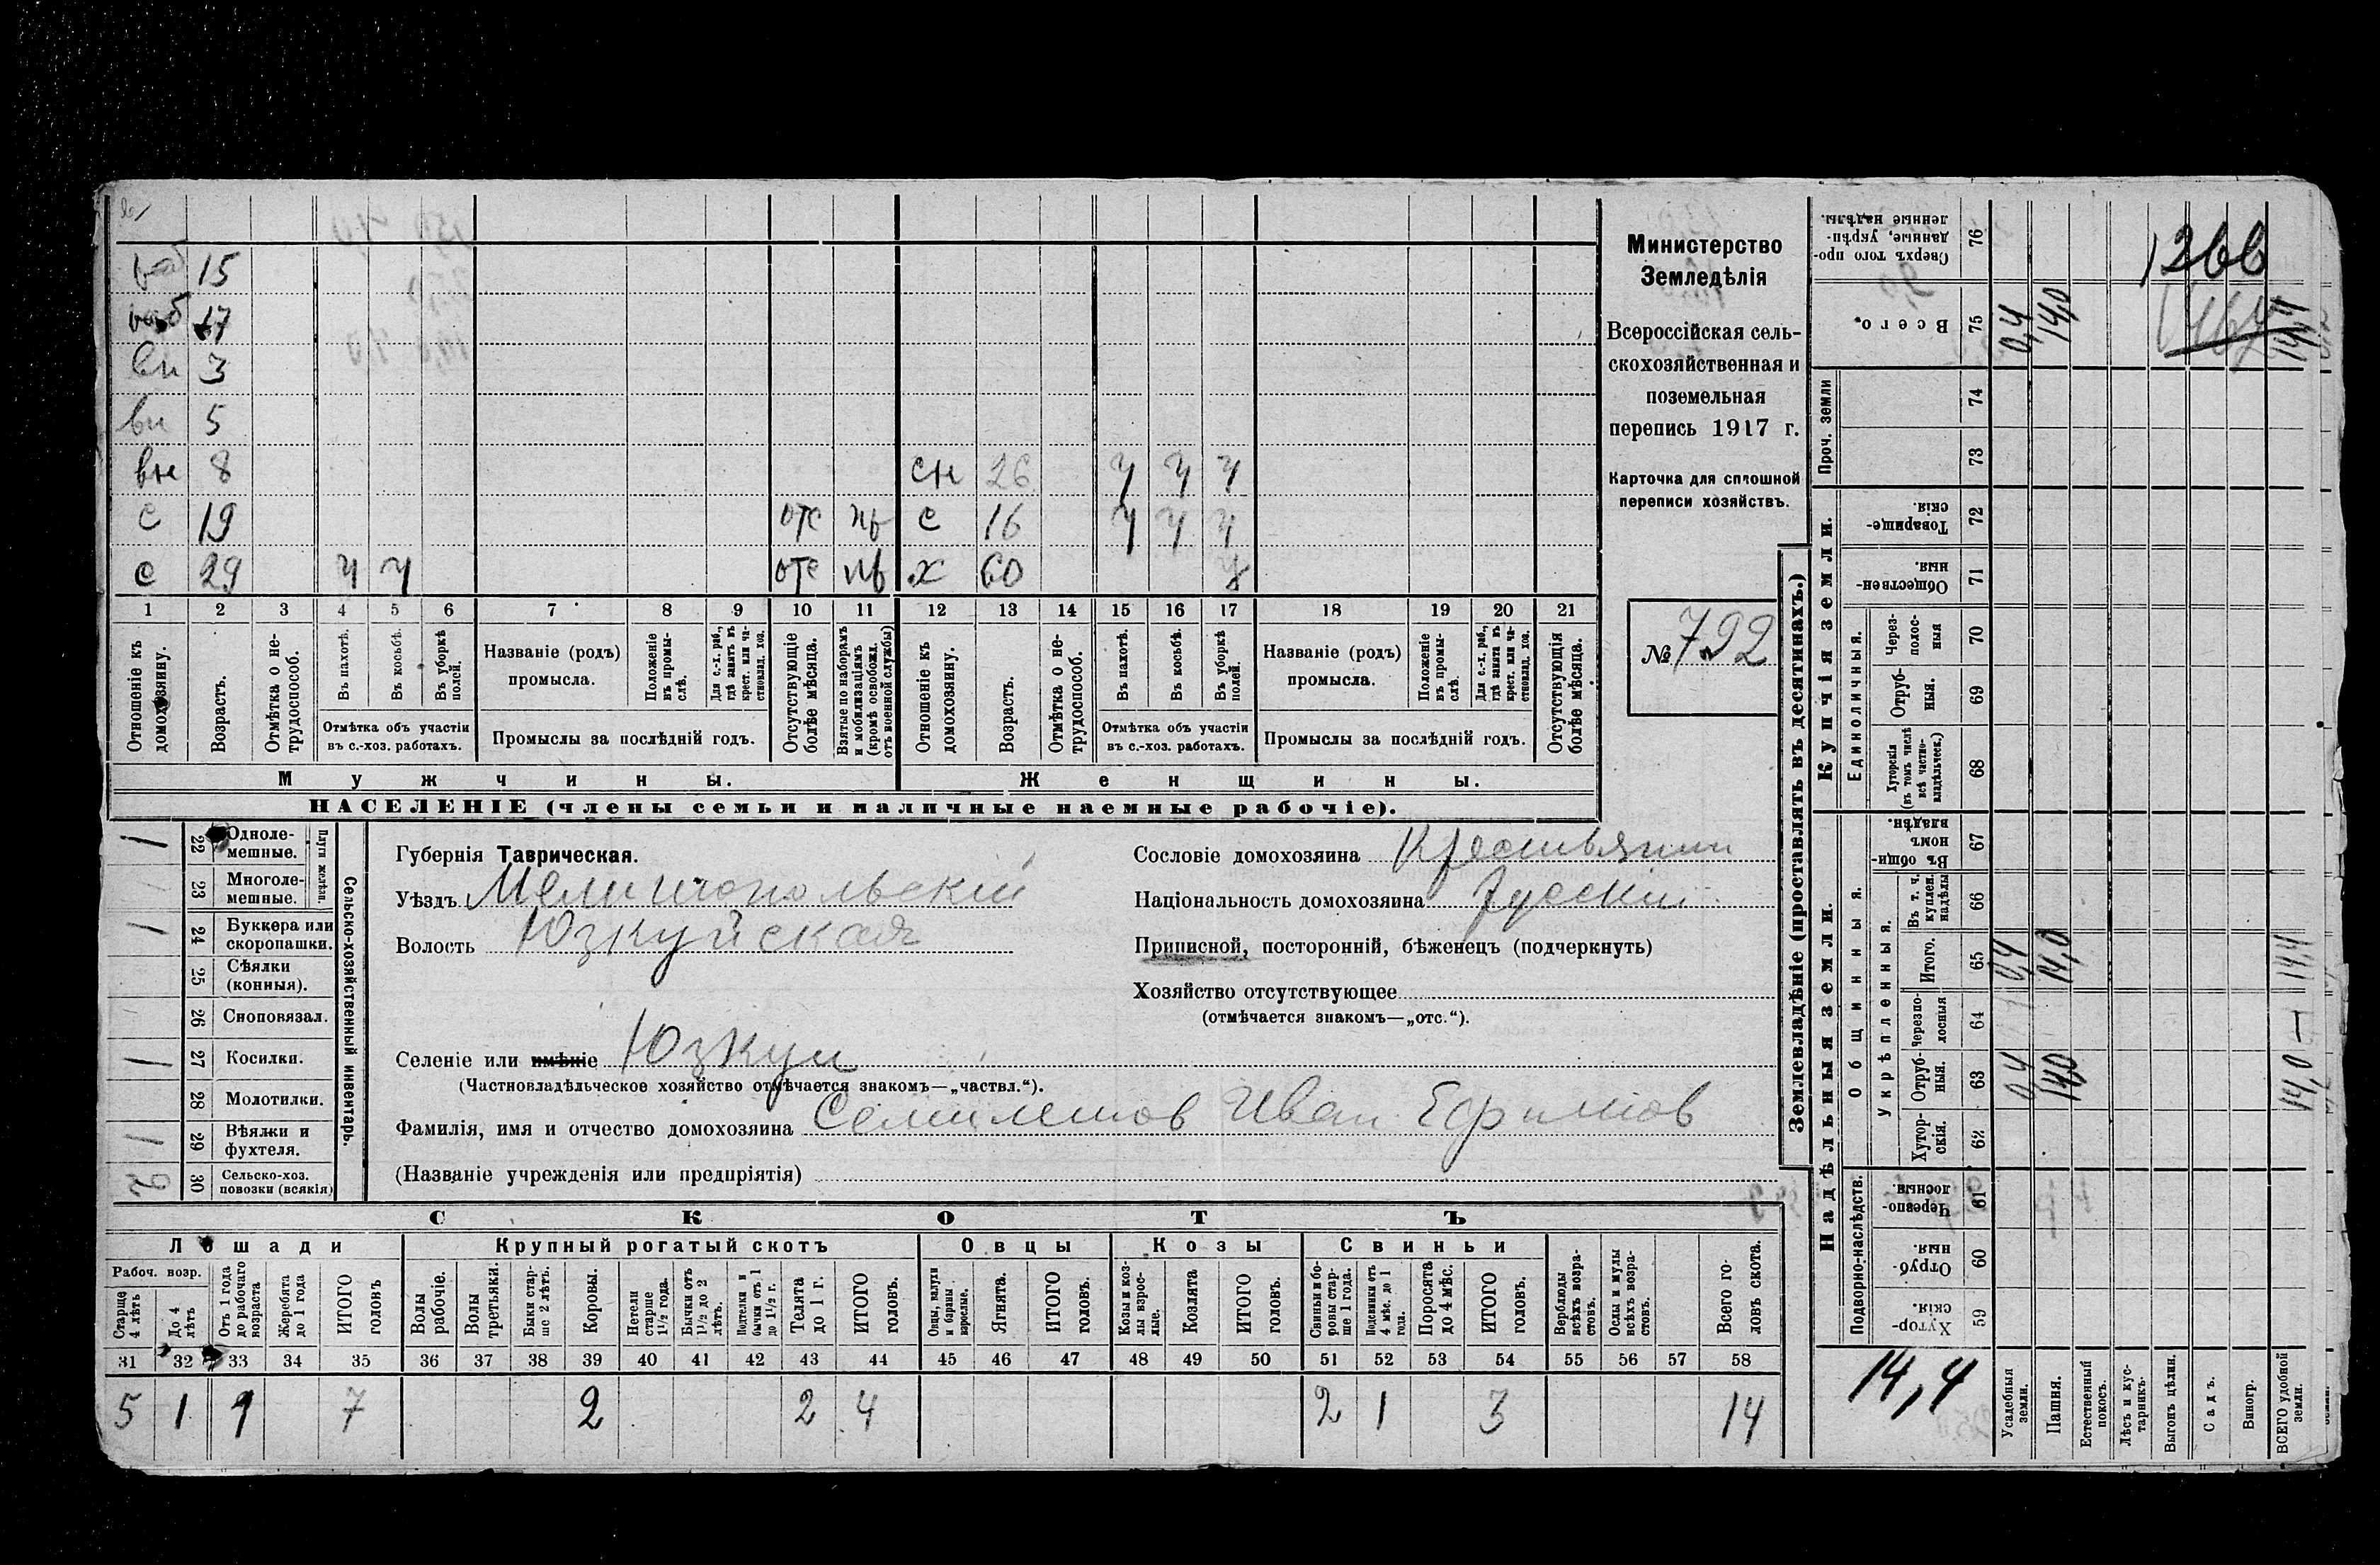 раб 15
раб 17
вн 3
вн 5
вн 8 сн 26 ч ч ч
с 19 отс нв с 16 ч ч ч
с 29 ч ч отс нв х 60 ч
1 2 3 4 5 6 7 8 9 10 11 12 13 14 15 16 17 18 19 20 21
Отношеніе къ домохозяину.
Возрастъ.
Отмѣтка о нетрудоспособ.
Въ пахотѣ.
Въ косьбѣ.
Въ уборкѣ полей.
Отмѣтка объ участіи въ с.-хоз. работахъ.
Названіе (родъ) промысла.
Положеніе въ промыслѣ.
Для с.-х. раб., гдѣ занятъ въ крест. или частновлад. хоз.
Промыслы за послѣдній годъ.
Отсутствующіе болѣе мѣсяца.
Взятые по наборамъ и мобилизаціямъ (кромѣ освобожд. отъ военной службы)
Отношеніе къ домохозяину.
Возрастъ.
Отмѣтка о нетрудоспособ.
Въ пахотѣ.
Въ косьбѣ.
Въ уборкѣ полей.
Отмѣтка объ участіи въ с.-хоз. работахъ.
Названіе (родъ) промысла.
Положеніе въ промыслѣ.
Для с.-х. раб., гдѣ занята въ крест. или частновлад. хоз.
Промыслы за послѣдній годъ.
Отсутствующія болѣе мѣсяца.
Мужчины. Женщины.
НАСЕЛЕНІЕ (члены семьи и наличные наемные рабочіе).
Министерство
Земледѣлія
Всероссійская сель-
скохозяйственная и
поземельная
перепись 1917 г.
Карточка для сплошной
переписи хозяйствъ.
№ 792
Сельско-хозяйственный инвентарь.
Плуги желѣзн.
1 22 Однолемешные.
23 Многолемешные.
1 24 Буккера или скоропашки.
25 Сѣялки (конныя).
26 Сноповязал.
1 27 Косилки.
28 Молотилки.
1 29 Вѣялки и фухтеля.
2 30 Сельско-хоз. повозки (всякія)
Губернія Таврическая.
Уѣздъ Мелитопольскій
Волость Юзкуйская
Селеніе или имѣніе Юзкуи
(Частновладѣльческое хозяйство отмѣчается знакомъ—„частвл.“).
Фамилія, имя и отчество домохозяина Семилетов Иван Ефимов
(Названіе учрежденія или предпріятія)
Сословіе домохозяина Крестьянин
Національность домохозяина Русскій
Приписной, посторонній, бѣженецъ (подчеркнуть)
Хозяйство отсутствующее
(отмѣчается знакомъ—„отс.“).
СКОТЪ
Лошади Крупный рогатый скотъ Овцы Козы Свиньи
Рабоч. возр.
Старше 4 лѣтъ
До 4 лѣтъ
Отъ 1 года до рабочаго возраста
Жеребята до 1 года
ИТОГО головъ
Волы рабочіе.
Волы третьяки.
Быки старше 2 лѣтъ.
Коровы.
Нетели старше 1½ года.
Бычки отъ 1½ до 2 лѣтъ.
Подтелки и бычки отъ 1 до 1½ г.
Телята до 1 г.
ИТОГО головъ.
Овцы, валухи и бараны взрослые.
Ягнята.
ИТОГО головъ.
Козы и козлы взрослые.
Козлята
ИТОГО головъ.
Свиньи и боровы старше 1 года.
Подсвинки отъ 4 мѣс. до 1 года.
Поросята до 4 мѣс.
ИТОГО головъ.
Верблюды всѣхъ возрастовъ.
Ослы и мулы всѣхъ возрастовъ.
Всего головъ скота.
31 32 33 34 35 36 37 38 39 40 41 42 43 44 45 46 47 48 49 50 51 52 53 54 55 56 57 58
5 1 1 7 2 2 4 2 1 3 14
Землевладѣніе (проставлять въ десятинахъ.)
Надѣльныя земли. Купчія земли. Проч. земли
Подворно-наслѣдств. Общинныя. Укрѣпленныя. Единоличныя.
Хуторскія. 59
Отрубныя. 60
Черезполосныя. 61
Хуторскія. 62
Отрубныя. 63 0,4 14,0
Черезполосныя 64
Итого. 65 0,4 14,0
Въ т. ч. куплен. надѣлы 66
Въ общинномъ владѣн. 67
Хуторскія (въ томъ числѣ всѣ частновладѣльческ.) 68
Отрубныя. 69
Черезполосныя 70
Общественныя. 71
Товарищескія. 72
73
74
Всего. 75 0,4 14,0 14,4
Сверхъ того проданные, укрѣпленные надѣлы. 76
1266
14,4
Усадебныя земли.
Пашня.
Естественный покосъ.
Лѣсъ и кустарникъ.
Выгонъ цѣлин.
Садъ.
Виногр.
ВСЕГО удобной земли.
14,0 — 14,4